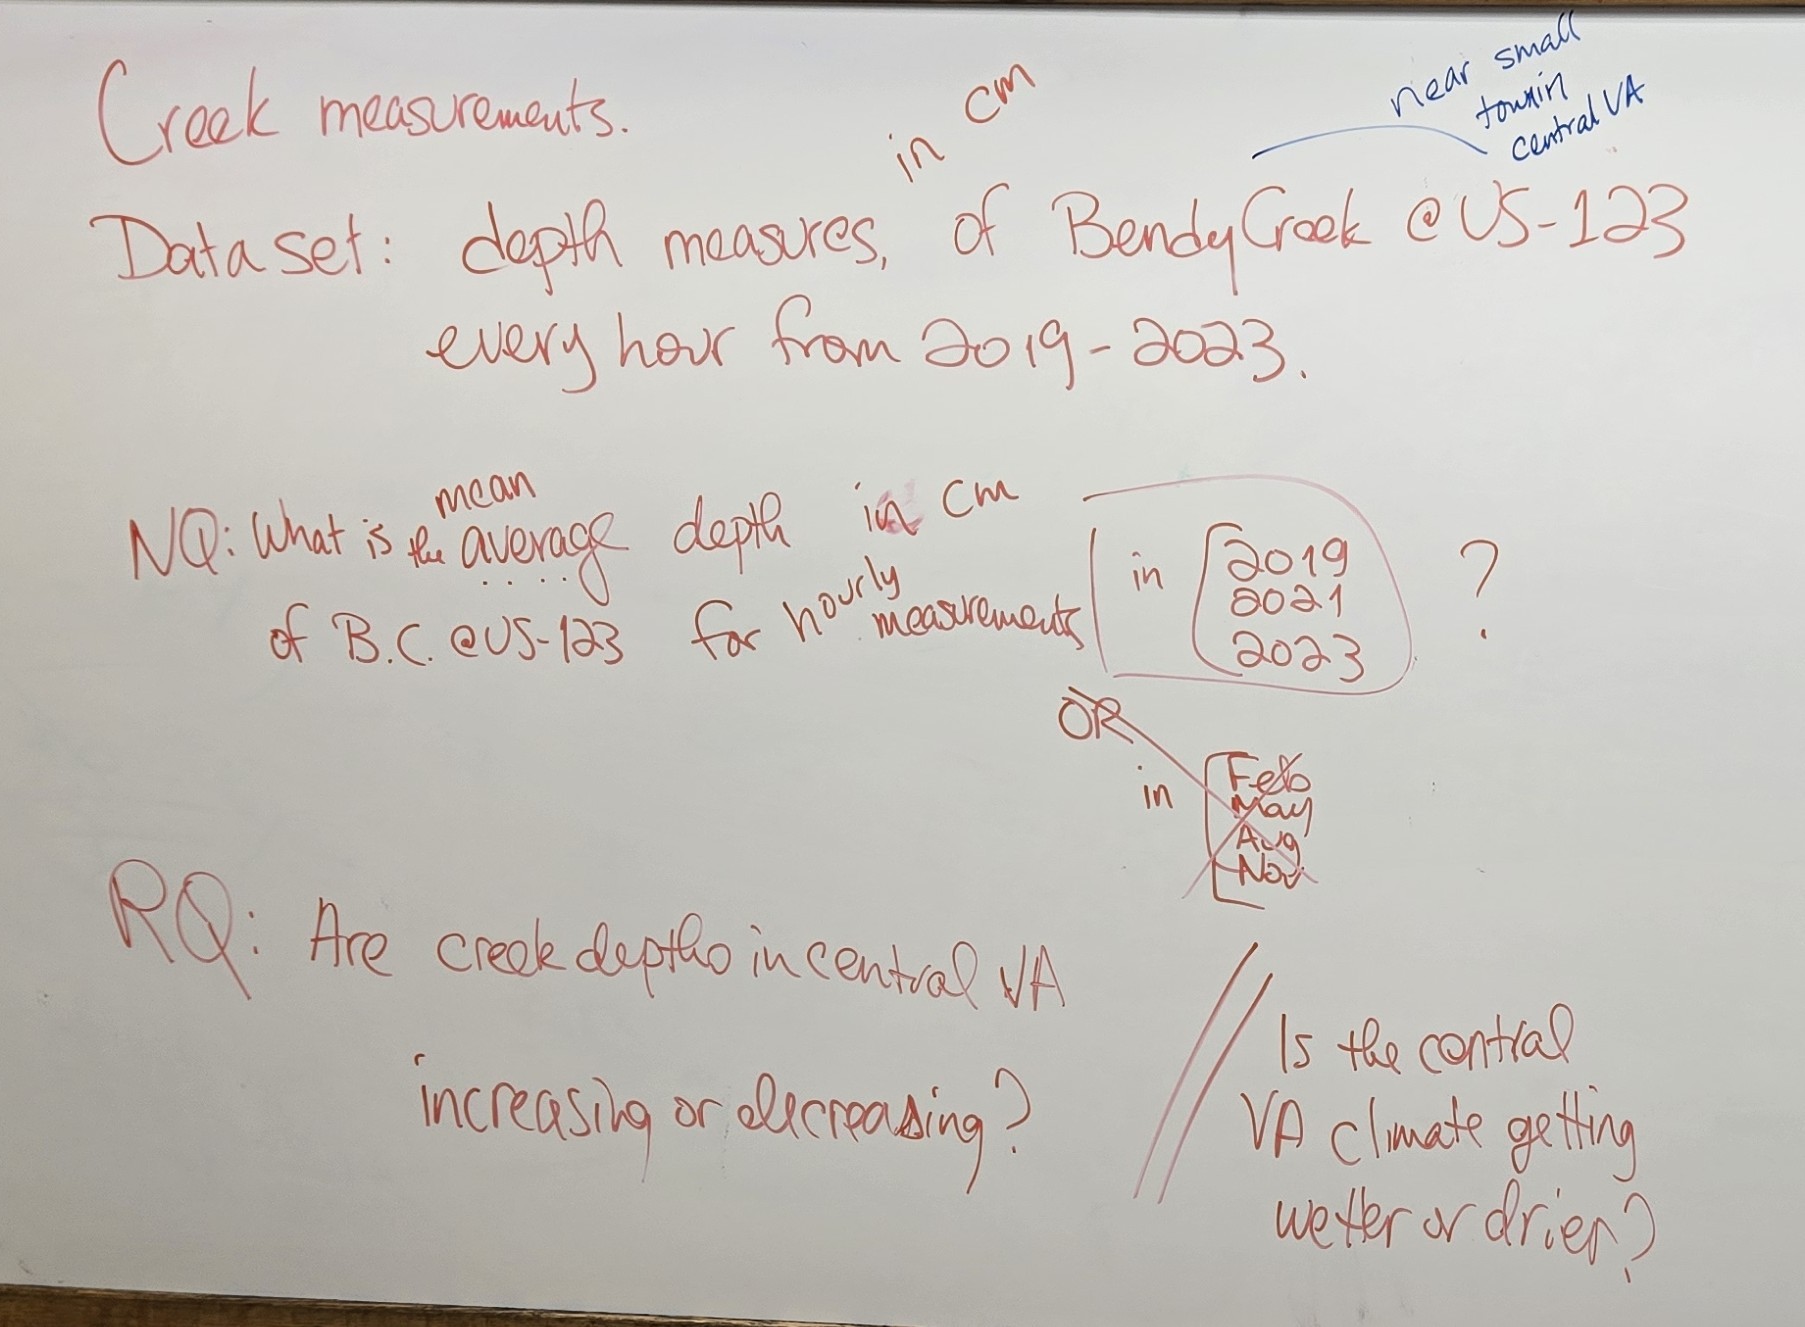 Creek measurements.
near small
town in
central VA
in cm
Data set: depth measures, of Bendy Creek @ US-123
every hour from 2019-2023.
mean
NQ: What is the average depth in cm
of B.C. @ US-123 for hourly measurements
in 2019
2021
2023
?
OR
in Feb
May
Aug
Nov
RQ: Are creek depths in central VA
increasing or decreasing?
Is the central
VA climate getting
wetter or drier?